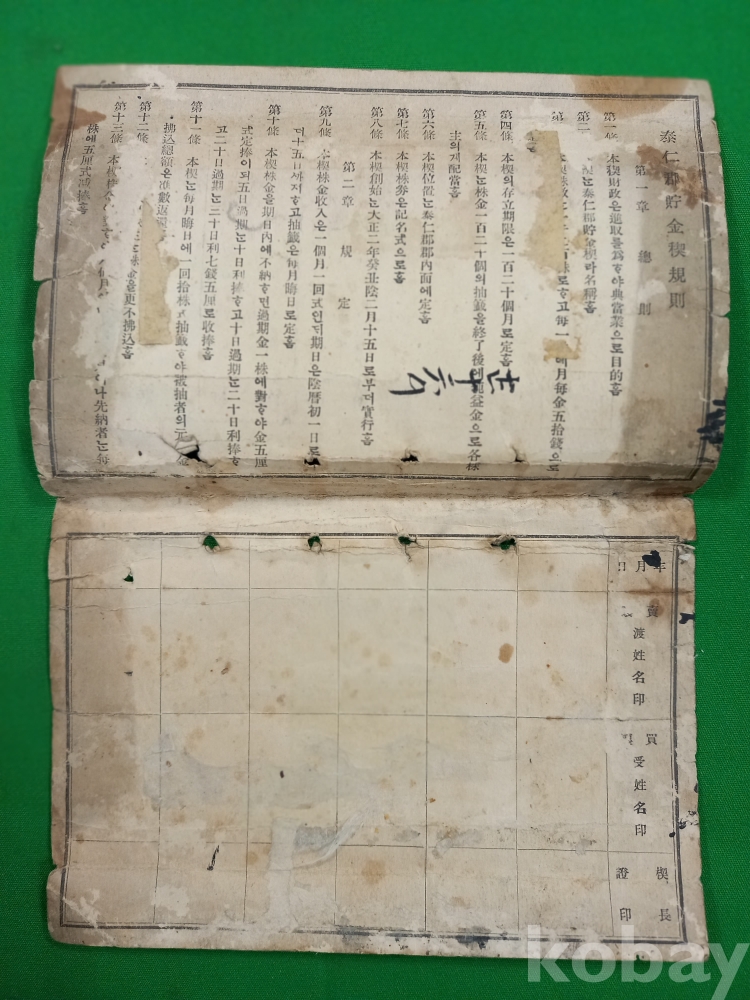 泰仁郡貯金稧規則
第一章 總則
第一條 本稧財政은進取를爲ᄒᆞ야典當業으로目的홈
稧ᄂᆞᆫ泰仁郡貯金稧라名稱홈
本稧株
月每金五拾錢으로
第四條 本稧의存立期限은一百二十個月로定홈
第五條 本稧ᄂᆞᆫ株金一百二十個의抽籤을終了後에 益金으로各株
主의게配當홈
第六條 本稧位置ᄂᆞᆫ泰仁郡郡內面에定홈
第七條 本稧株券은記名式으로홈
第八條 本稧創始ᄂᆞᆫ大正二年癸丑陰二月十五日로부터實行홈
第二章 規定
第九條 本稧株金收入은一個月一回式인ᄃᆡ期日은陰曆初一日로
터十五日ᄭᆞ지ᄒᆞ고抽籤은每月晦日로定홈
第十條 本稧株金을期日內에不納ᄒᆞ면過期金一株에對ᄒᆞ야金五厘
式定捧이되五日過期ᄂᆞᆫ十日利捧ᄒᆞ고十日過期ᄂᆞᆫ二十日利捧ᄒᆞ
고二十日過期ᄂᆞᆫ三十日利七錢五厘로收捧홈
第十一條 本稧ᄂᆞᆫ每月晦日에一回拾株式抽籤ᄒᆞ야被抽者의元 金
拂込總額은準數返
第十二條
株金을更不拂込홈
第十三條 本稧株
나先納者ᄂᆞᆫ每
株에五厘式減捧홈
年月日
賣渡姓名印
買受姓名印
稧長證印
kobay